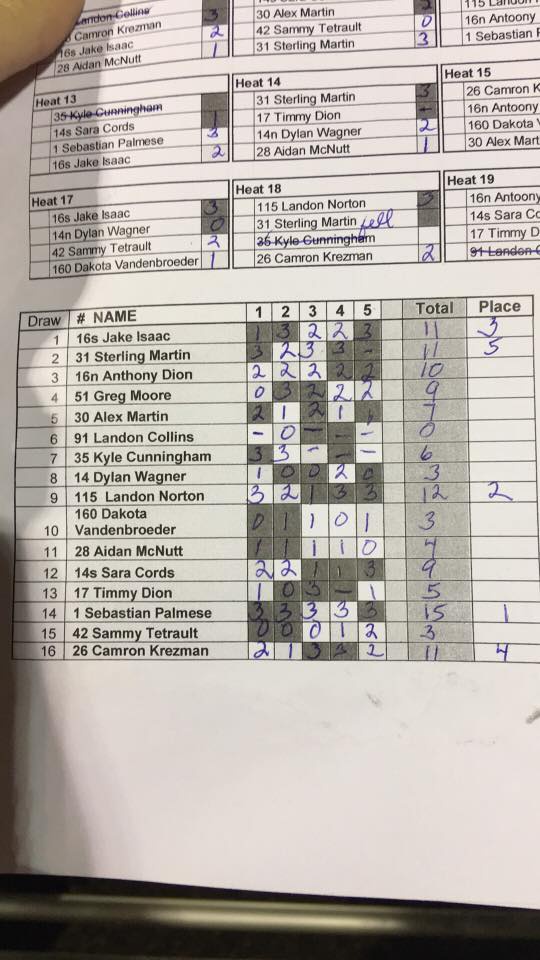 Landon Collins 3
Camron Krezman 2
16s Jake Isaac 1
28 Aidan McNutt
30 Alex Martin 2
42 Sammy Tetrault 0
31 Sterling Martin 3
115 Landon
16n Antoony
1 Sebastian
Heat 13
35 Kyle Cunningham
14s Sara Cords 1
1 Sebastian Palmese 3
16s Jake Isaac 2
Heat 14
31 Sterling Martin 3
17 Timmy Dion -
14n Dylan Wagner 2
28 Aidan McNutt 1
Heat 15
26 Camron K
16n Antoony
160 Dakota
30 Alex Mart
Heat 17
16s Jake Isaac 3
14n Dylan Wagner 0
42 Sammy Tetrault 2
160 Dakota Vandenbroeder 1
Heat 18
115 Landon Norton 3
31 Sterling Martin fell
35 Kyle Cunningham
26 Camron Krezman 2
Heat 19
16n Antoony
14s Sara Co
17 Timmy D
91 Landon
Draw # NAME 1 2 3 4 5 Total Place
1 16s Jake Isaac 1 3 2 2 3 11 3
2 31 Sterling Martin 3 2 3 3 - 11 5
3 16n Anthony Dion 2 2 2 2 2 10
4 51 Greg Moore 0 3 2 2 2 9
5 30 Alex Martin 2 1 2 1 1 7
6 91 Landon Collins - 0 - - - 0
7 35 Kyle Cunningham 3 3 - - - 6
8 14 Dylan Wagner 1 0 0 2 0 3
9 115 Landon Norton 3 2 1 3 3 12 2
160 Dakota
10 Vandenbroeder 0 1 1 0 1 3
11 28 Aidan McNutt 1 1 1 1 0 4
12 14s Sara Cords 2 2 1 1 3 9
13 17 Timmy Dion 1 0 3 - 1 5
14 1 Sebastian Palmese 3 3 3 3 3 15 1
15 42 Sammy Tetrault 0 0 0 1 2 3
16 26 Camron Krezman 2 1 3 3 2 11 4